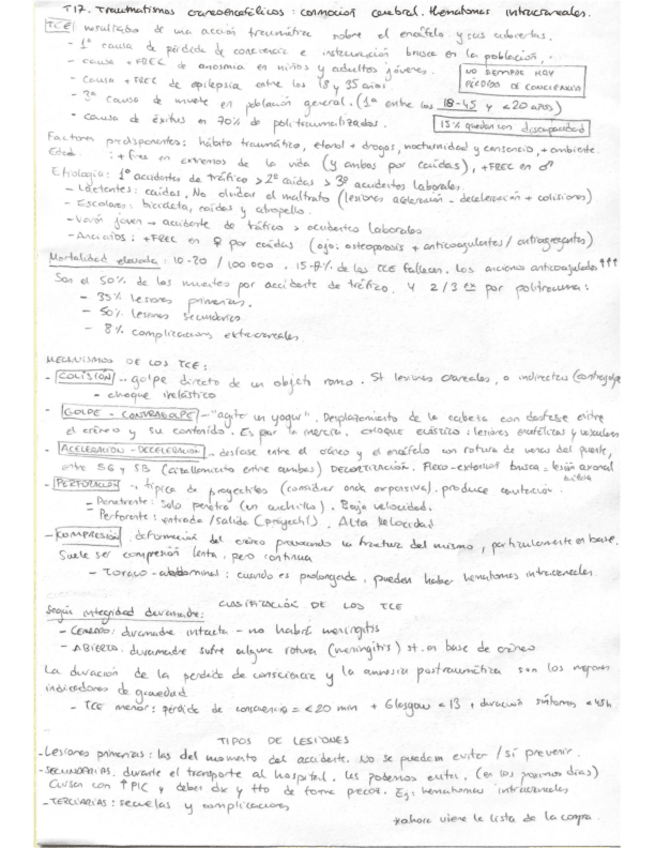 T17. Traumatismos craneoencefálicos: conmoción cerebral. Hematomas intracraneales.
TCE: resultados de una acción traumática sobre el encéfalo y sus cubiertas.
- 1ª causa de pérdida de consciencia e instauración brusca en la población.
- causa + FREC de anosmia en niños y adultos jóvenes.
- Causa + FREC de epilepsia entre los 18 y 35 años.
NO SIEMPRE HAY PÉRDIDAS DE CONSCIENCIA
- 3ª causa de muerte en población general. (1ª entre los 18-45 y <20 años)
- causa de éxitus en 70% de politraumatizados.
15% quedan con discapacidad
Factores predisponentes: hábito traumático, etanol + drogas, nocturnidad y cansancio, + ambiente.
Edad: + frec en extremos de la vida (y ambos por caídas), + FREC en ♂
Etiología: 1º accidentes de tráfico > 2º caídas > 3º accidentes laborales.
- Lactentes: caídas. No olvidar el maltrato (lesiones aceleración - deceleración + colisiones)
- Escolares: bicicleta, caídas y atropello.
- Varón joven → accidente de tráfico > accidentes laborales
- Ancianos: + FREC en ♀ por caídas (ojo: osteoporosis + anticoagulantes / antiagregantes)
Mortalidad elevada: 10-20 / 100.000. de los TCE fallecen. Los ancianos anticoagulados ↑↑↑
Son el 50% de las muertes por accidente de tráfico. Y 2/3 por politrauma:
- 35% lesiones primarias.
- 50% lesiones secundarias
- 8% complicaciones extracraneales.
MECANISMOS DE LOS TCE:
- COLISIÓN → golpe directo de un objeto romo. St lesiones craneales, o indirectas (contragolpe
- choque inelástico
- GOLPE - CONTRAGOLPE → "agite un yogur". Desplazamiento de la cabeza con desfase entre
el cráneo y su contenido. Es por la inercia. choque elástico: lesiones encefálicas y vasculares
- ACELERACION - DECELERACIÓN → desfase entre el cráneo y el encéfalo con rotura de venas del puente,
entre SG y SB (cizallamiento entre ambas) DECORTIZACIÓN. Flexo-extensión brusca = lesión axonal
- PERFORACIÓN → típica de proyectiles (considerar onda expansiva). produce cavitación.
- Penetrante: Solo penetra (en cuchillos). Baja velocidad.
Perforante: entrada/salida (proyectil). Alta velocidad
- COMPRESIÓN. deformación del cráneo provocando la fractura del mismo, particularmente en base.
Suele ser compresión lenta, pero continua
- Toraco-abdominal: cuando es prolongada, pueden haber hematomas intracraneales.
CLASIFICACIÓN DE LOS TCE
Según integridad duramadre:
- CERRADO: duramadre intacta - no habrá meningitis
- ABIERTO: duramadre sufre alguna rotura (meningitis) st. en base de cráneo
La duración de la perdida de consciencia y la amnesia postraumática son los mejores
indicadores de gravedad
- TCE menor: pérdida de consciencia = <20 min + Glasgow < 13 + duración síntomas < 48h
TIPOS DE LESIONES
- Lesiones primarias: las del momento del accidente. No se pueden evitar / sí prevenir.
- SECUNDARIAS. durante el transporte al hospital. Las podemos evitar. (en los próximos días)
Cursan con ↑PIC y deben dx y tto de forma precoz. Ej: hematomas intracraneales
- TERCIARIAS: secuelas y complicaciones
*ahora viene la lista de la compra.